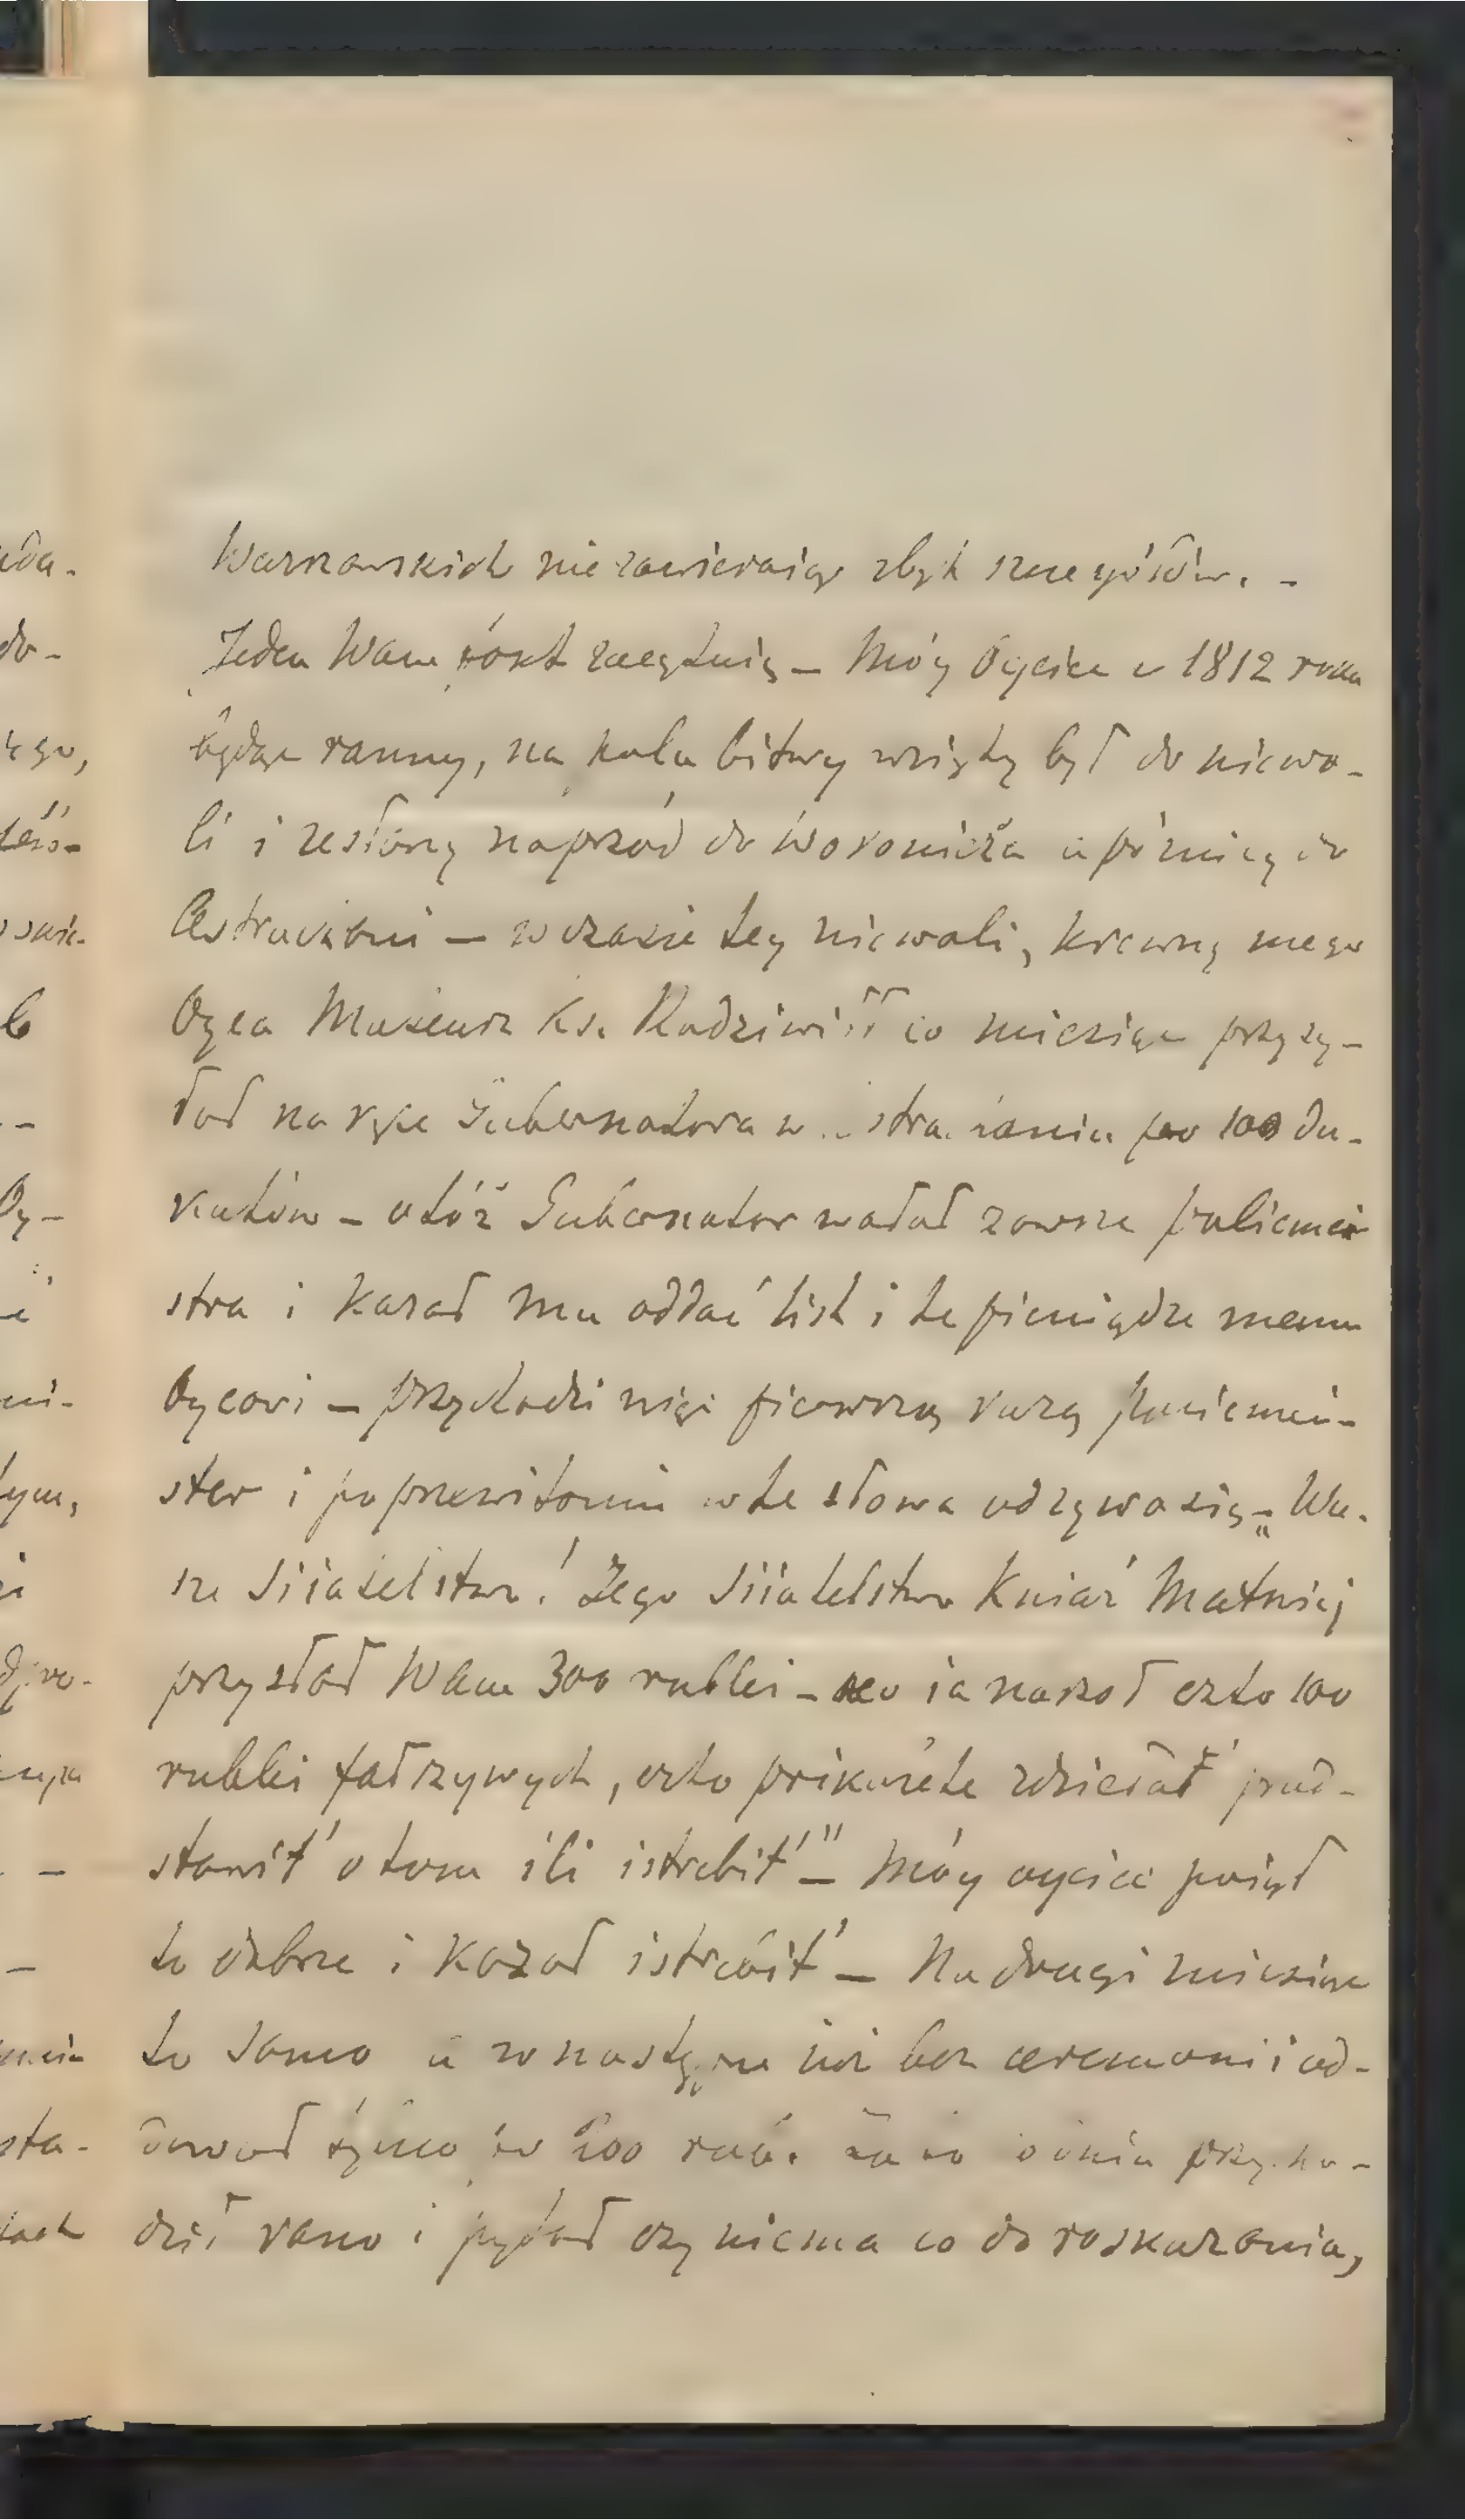 Warszawskich nie zawieraiąc zbyt szczegółów. –
Jeden Wam zacytuię – Móy Oyciec w 1812 roku
będąc ranny, na polu bitwy wzięty był do niewo-
li i zesłany naprzód do Woronieża a późniey do
Astrachani – w czasie tey niewoli, krewny mego
Oyca Mateusz Ks. Radziwiłł co miesiąc przysy-
łał na ręce Gubernatora w po 100 du-
katów – otóż Gubernator wołał zawsze policmei-
stra i kazał mu oddać list i te pieniądze memu
Oycovi – przychodzi więc pierwszy razą policmei-
ster i po przewitaniu w te słowa odzywa się – „Wa-
sze Siiatelstwo! Jego Siiatelstwo Kniaź Matwiej
przysłał Wam 300 rublei – no ia naszoł czto 100
rublei fałszywych, czto prikażete zdziełať pred-
stawiť o tom ili istrebiť” – Móy oyciec poiął
to dobrze i kazał istrebiť – Na drugi miesiąc
to samo a w następne iuż bez ceremonii od-
dawał tylko po 200 rub. za to przycho-
dził rano i pytał czy niema co do roskazania,